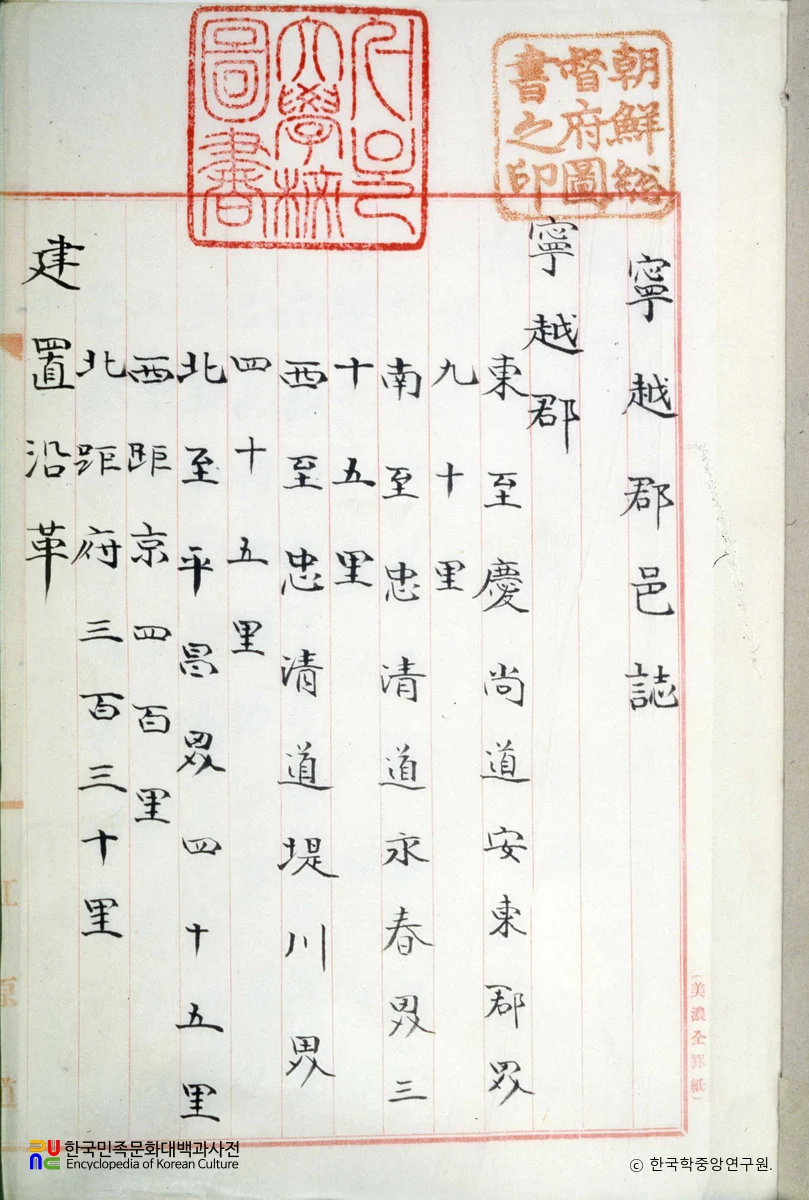 朝鮮総
督府圖
書之印
서울
大學校
圖書
寧越郡邑誌
寧越郡
東至慶尚道安東郡界
九十里
南至忠清道永春界三
十五里
西至忠清道堤川界
四十五里
北至平昌界四十五里
西距京四百里
北距府三百三十里
建置沿革
(美濃全罫紙)
한국민족문화대백과사전
Encyclopedia of Korean Culture
ⓒ 한국학중앙연구원.